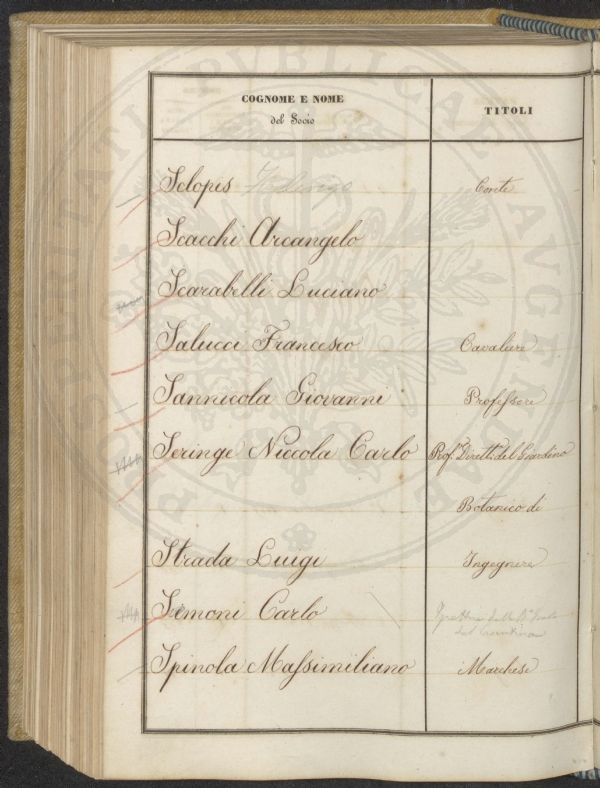 COGNOME E NOME
del Socio
TITOLI
Sclopis Federigo Conte
Scacchi Arcangelo
Scarabelli Luciano
Salucci Francesco Cavaliere
Sannicola Giovanni Professore
Seringe Niccola Carlo Prof. Dirett. del Giardino
Botanico di
Strada Luigi Ingegnere
Siemoni Carlo
del Casentino
Spinola Massimiliano Marchese
PROSPERITATI PUBLICAE AVGENDAE